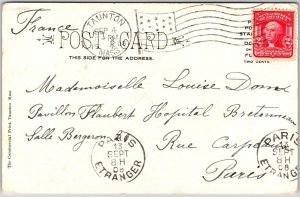 France
TAUNTON
MASS
POST CARD
THIS SIDE FOR THE ADDRESS.
TWO CENTS
Mademoiselle Louise
Pavillon Flaubert Hopital Bretonneau
Salle Bergeron
Rue Carpeaux
Paris
PARIS
13
SEPT
8H
08
ETRANGER
PARIS
13
SEPT
8H
08
ETRANGER